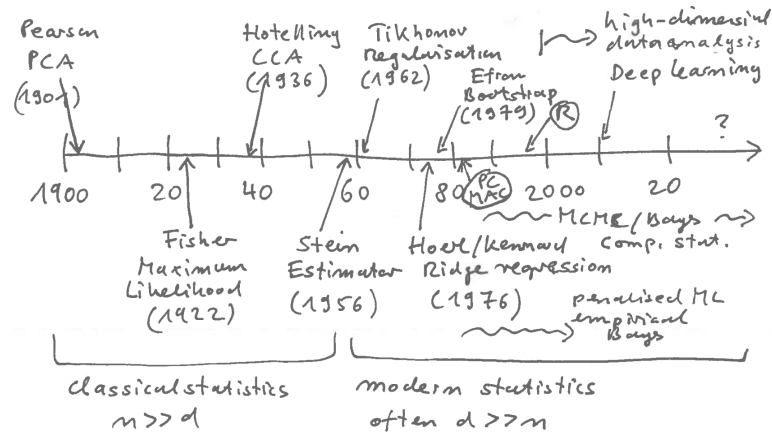 Pearson
PCA
(1901)
Hotelling
CCA
(1936)
Tikhonov
Regularisation
(1962)
Efron
Bootstrap
(1979)
R
high-dimensional
data analysis
Deep learning
?
1900
20
40
60
80
PC
MAC
2000
20
MCMC/Bays
Comp. stat.
Fisher
Maximum
Likelihood
(1922)
Stein
Estimator
(1956)
Hoerl/Kennard
Ridge regression
(1976)
penalised ML
empirical
Bays
classical statistics
n>>d
modern statistics
often d>>n